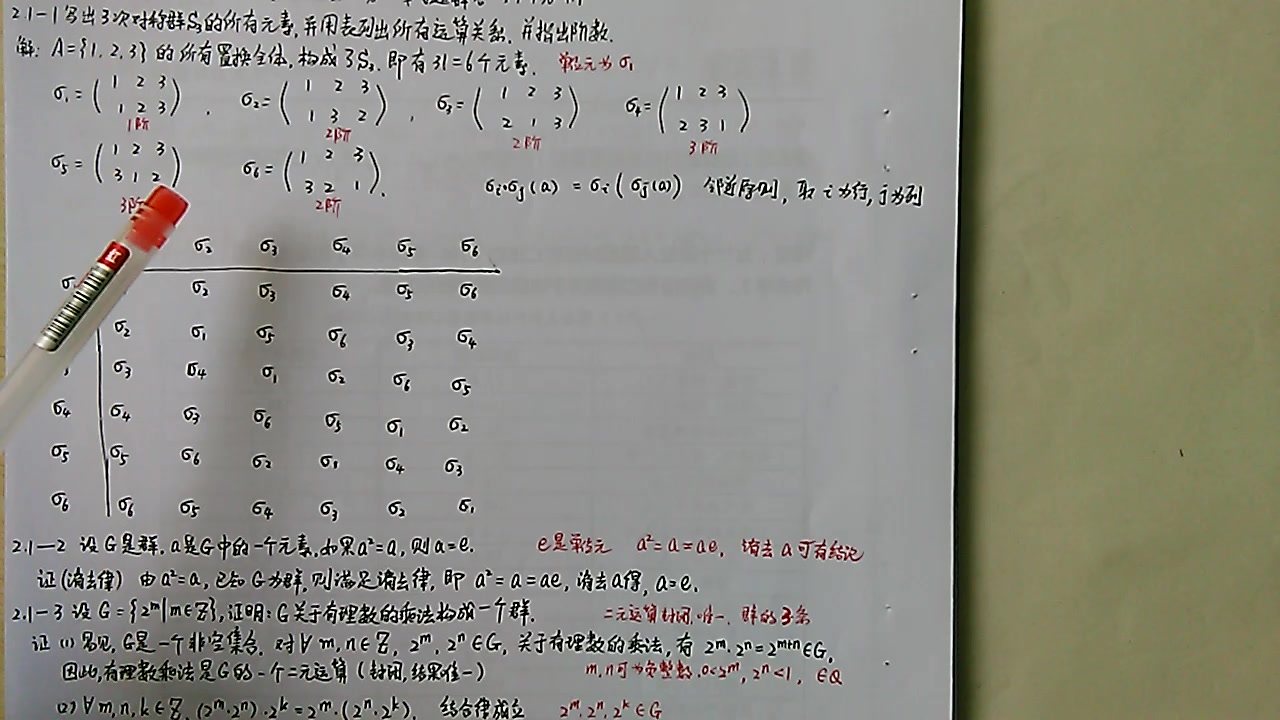 2.1-1 写出3次对称群S₃的所有元素,并用表列出所有运算关系,并指出阶数.
解: A={1,2,3}的所有置换全体,构成了S₃.即有3!=6个元素. 单位元为σ₁
σ₁=( 1 2 3 , σ₂=( 1 2 3 , σ₃=( 1 2 3 σ₄=( 1 2 3
1 2 3 ) 1 3 2 ) 2 1 3 ) 2 3 1 )
1阶 2阶 2阶 3阶
σ₅=( 1 2 3 σ₆=( 1 2 3
3 1 2 ) 3 2 1 ). σᵢ∘σⱼ(a) = σᵢ(σⱼ(a)) 取i为行,j为列
3阶 2阶
红
σ₂ σ₃ σ₄ σ₅ σ₆
σ₂ σ₃ σ₄ σ₅ σ₆
σ₂ σ₁ σ₅ σ₆ σ₃ σ₄
σ₃ σ₄ σ₁ σ₂ σ₆ σ₅
σ₄ σ₄ σ₃ σ₆ σ₅ σ₁ σ₂
σ₅ σ₅ σ₆ σ₂ σ₁ σ₄ σ₃
σ₆ σ₆ σ₅ σ₄ σ₃ σ₂ σ₁
2.1-2 设G是群,a是G中的一个元素,如果a²=a,则a=e. e是单位元 a²=a=ae, 消去a可有结论
证(消去律) 由a²=a,已知G为群,则满足消去律,即 a²=a=ae,消去a得,a=e.
2.1-3 设G={2ᵐ|m∈Z},证明:G关于有理数的乘法构成一个群. 二元运算封闭,唯一,群的3条
证 (1) 易见,G是一个非空集合.对∀m,n∈Z, 2ᵐ,2ⁿ∈G,关于有理数的乘法,有 2ᵐ·2ⁿ=2ᵐ⁺ⁿ∈G,
因此,有理数乘法是G的一个二元运算(封闭,结果唯一) m,n可为负整数,0<2ᵐ,2ⁿ<1, ∈Q
(2) ∀m,n,k∈Z, (2ᵐ·2ⁿ)·2ᵏ=2ᵐ·(2ⁿ·2ᵏ), 结合律成立 2ᵐ,2ⁿ,2ᵏ∈G